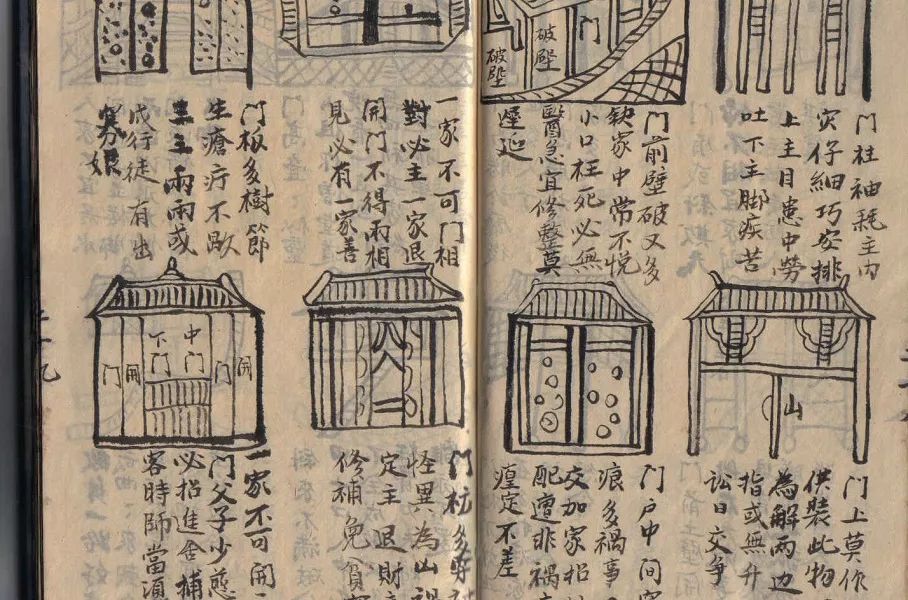 破壁
破壁
门
门柱袖耗主内
灾仔細巧安排
上主目患中勞
吐下主脚疾苦
门前壁破又多
缺家中常不悦
小口枉死必無
醫急宜修整莫
遲延
一家不可门相
對必主一家退
開门不得兩相
見必有一家善
门板多樹節
生瘡疔不歇
三主兩兩或
戍行徒有出
寡娘
山
開
门
中门
下门
開
门
门上莫作
供裝此物
為解兩边
指或無升
訟日交争
门户中间
痕多禍事
交加家招
配遭非禍
瘟定不差
门枋多穿
怪異為凶禍
定主退財
修補免貧
一家不可開
门父子少慈
必招進舍補
客時師當須